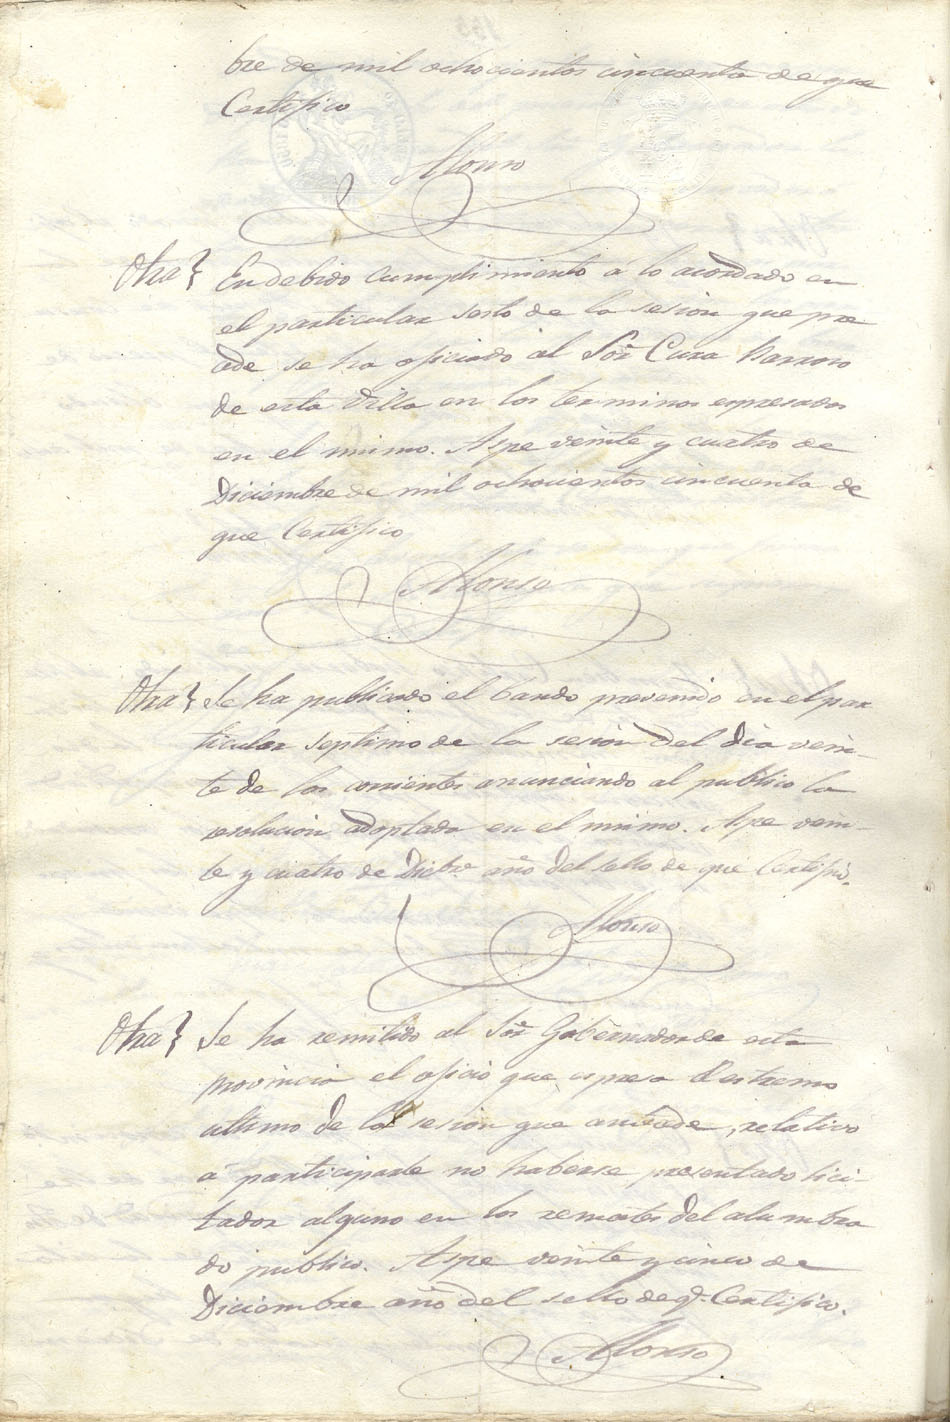 bre de mil ochocientos cincuenta de que
Certifico
Alonso
Otra} En debido cumplimiento á lo acordado en
el particular sesto de la sesion que pre
cede se ha oficiado al Sor. Cura Parroco
de esta Villa en los terminos espresados
en el mismo. Aspe veinte y cuatro de
Diciembre de mil ochocientos cincuenta de
que Certifico
Alonso
Otra} Se ha publicado el bando prevenido en el par
ticular septimo de la sesion del dia vein-
te de los corrientes anunciando al publico la
resolucion adoptada en el mismo. Aspe vein-
te y cuatro de Dicbre. año del sello de que Certifico.
Alonso
Otra} Se ha remitido al Sor. Gobernador de esta
Provincia el oficio que espresa el estremo
ultimo de la sesion que antecede, relativo
á participarle no haberse presentado lici-
tador alguno en los remates del alumbra
do publico. Aspe veinte y cinco de
Diciembre año del sello de q.e Certifico.
Alonso